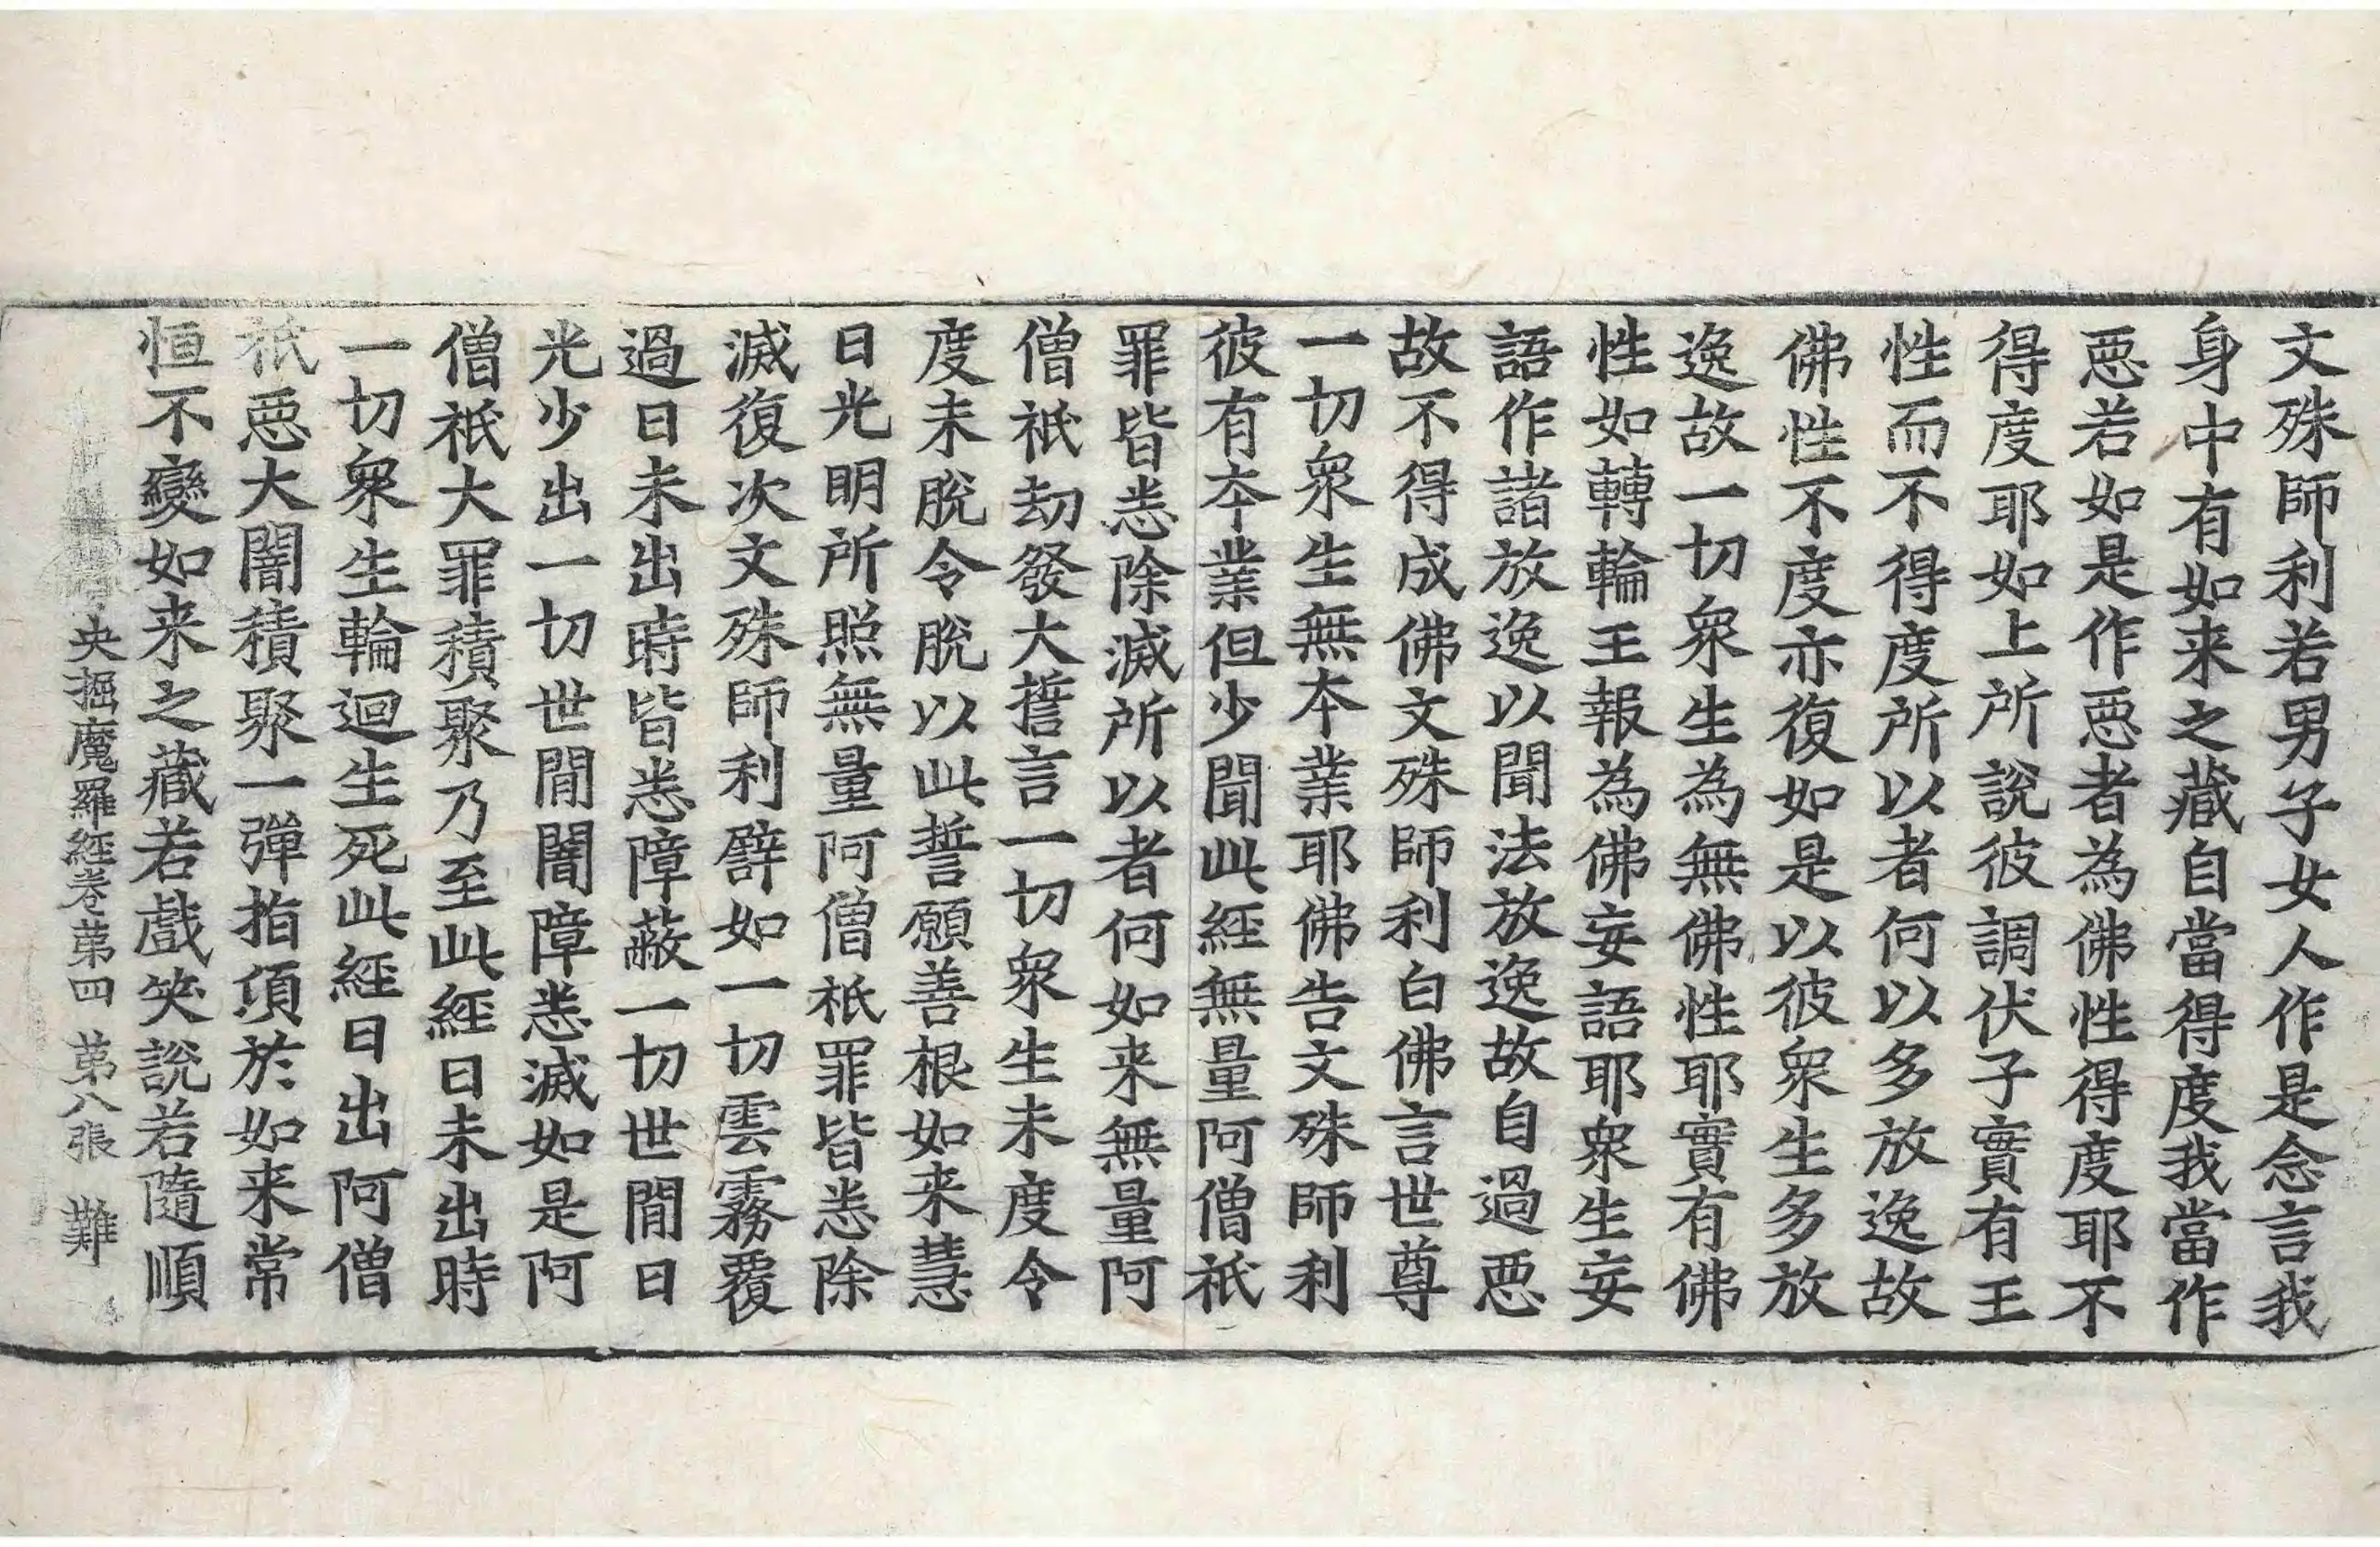 文殊師利若男子女人作是念言我
身中有如来之藏自當得度我當作
惡若如是作惡者為佛性得度耶不
得度耶如上所說彼調伏子實有王
性而不得度所以者何以多放逸故
佛性不度亦復如是以彼衆生多放
逸故一切衆生為無佛性耶實有佛
性如轉輪王報為佛妄語耶衆生妄
語作諸放逸以聞法放逸故自過惡
故不得成佛文殊師利白佛言世尊
一切衆生無本業耶佛告文殊師利
彼有本業但少聞此經無量阿僧祇
罪皆悉除滅所以者何如来無量阿
僧祇劫發大誓言一切衆生未度令
度未脫令脫以此誓願善根如来慧
日光明所照無量阿僧祇罪皆悉除
滅復次文殊師利譬如一切雲霧覆
過日未出時皆悉障蔽一切世間日
光少出一切世間闇障悉滅如是阿
僧祇大罪積聚乃至此經日未出時
一切衆生輪迴生死此經日出阿僧
祇惡大闇積聚一彈指頃於如来常
恒不變如来之藏若戲笑說若隨順
央掘魔羅經卷第四 第八張 難